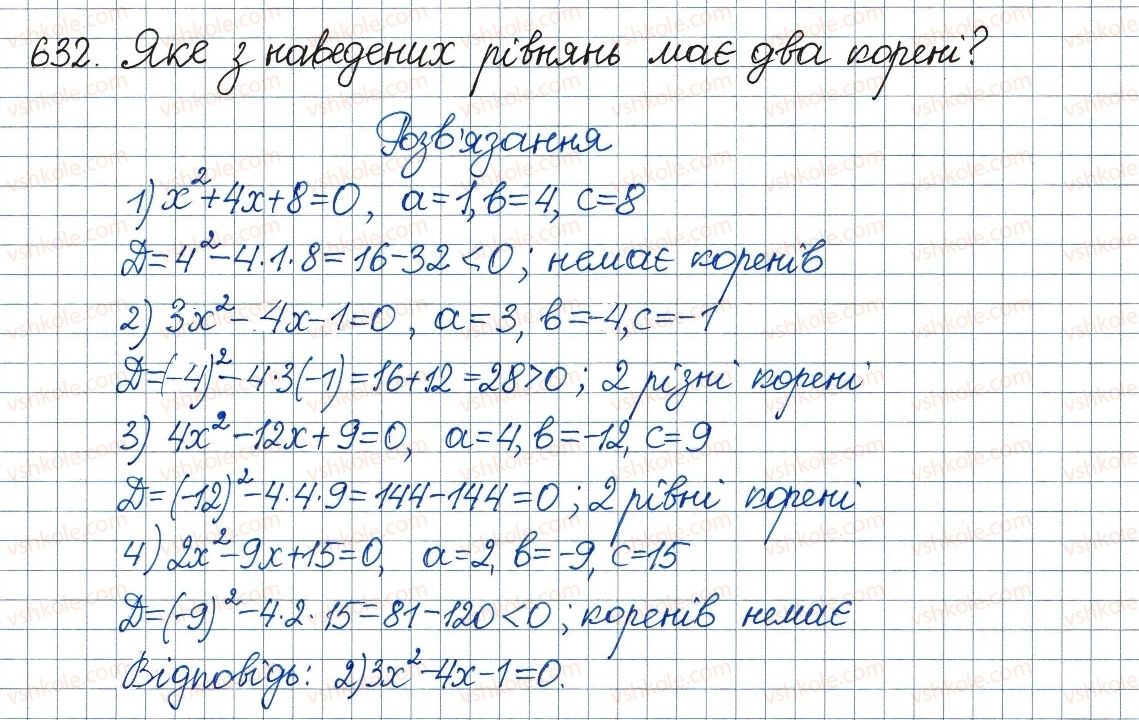 632. Яке з наведених рівнянь має два корені?
Розв'язання
1) x²+4x+8=0, a=1, b=4, c=8
D=4²-4·1·8=16-32<0; немає коренів
2) 3x²-4x-1=0, a=3, b=-4, c=-1
D=(-4)²-4·3(-1)=16+12=28>0; 2 різні корені
3) 4x²-12x+9=0, a=4, b=-12, c=9
D=(-12)²-4·4·9=144-144=0; 2 рівні корені
4) 2x²-9x+15=0, a=2, b=-9, c=15
D=(-9)²-4·2·15=81-120<0; коренів немає
Відповідь: 2) 3x²-4x-1=0.